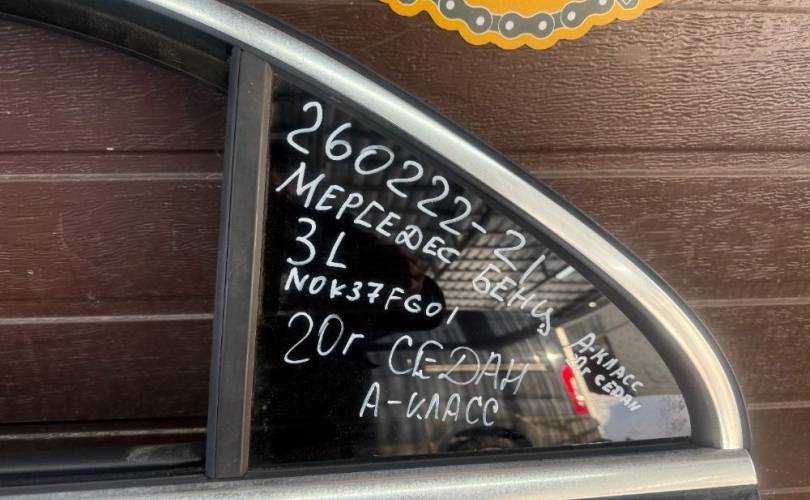 260222-21
МЕРСЕДЕС БЕНЦ
3L
NOK37FG01
20г СЕДАН
А-КЛАСС
А-КЛАСС
20г СЕДАН